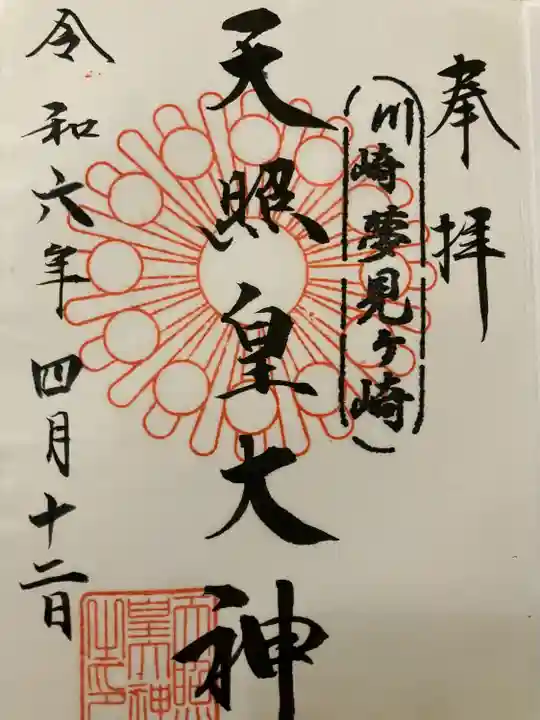 奉拝
(川崎夢見ヶ崎)
天照皇大神
令和六年四月十二日
天照
皇大神
之印